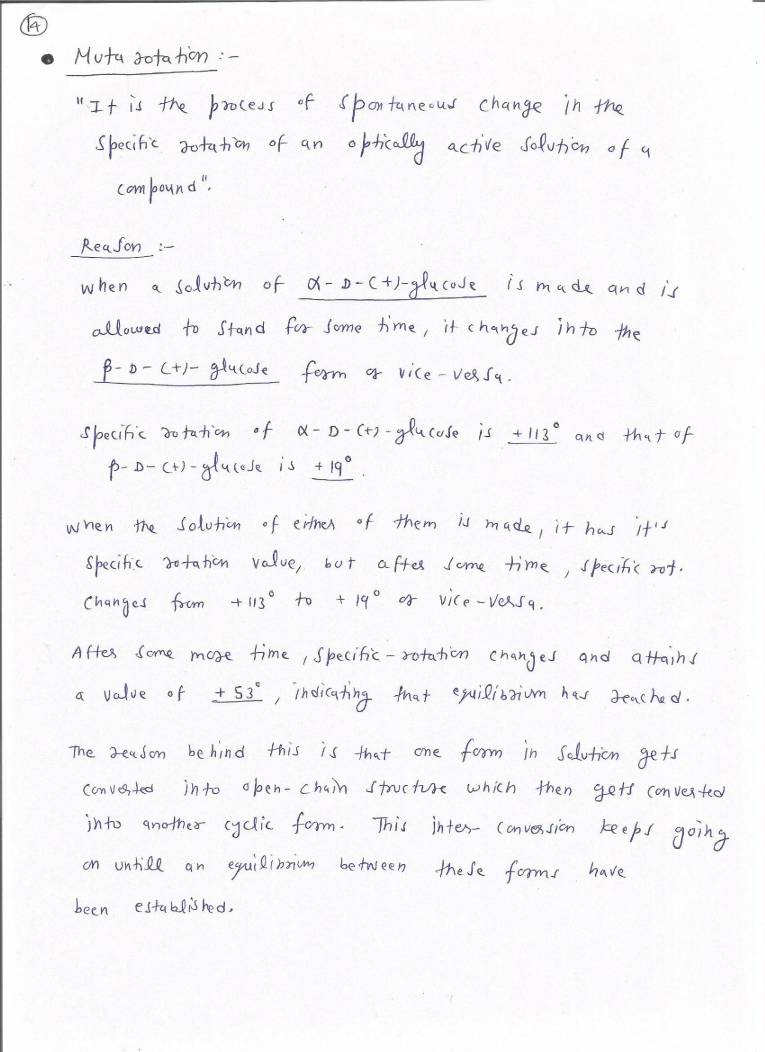 14
• Muta rotation :-
"It is the process of spontaneous change in the
specific rotation of an optically active solution of a
compound".
Reason :-
when a solution of α-D-(+)-glucose is made and is
allowed to stand for some time, it changes into the
β-D-(+)- glucose form or vice-versa.
specific rotation of α-D-(+)-glucose is +113° and that of
β-D-(+)-glucose is +19°.
when the solution of either of them is made, it has it's
specific rotation value, but after some time, specific rot.
changes from +113° to +19° or vice-versa.
After some more time, specific-rotation changes and attains
a value of +53°, indicating that equilibrium has reached.
The reason behind this is that one form in solution gets
converted into open-chain structure which then gets converted
into another cyclic form. This inter-conversion keeps going
on untill an equilibrium between these forms have
been established.